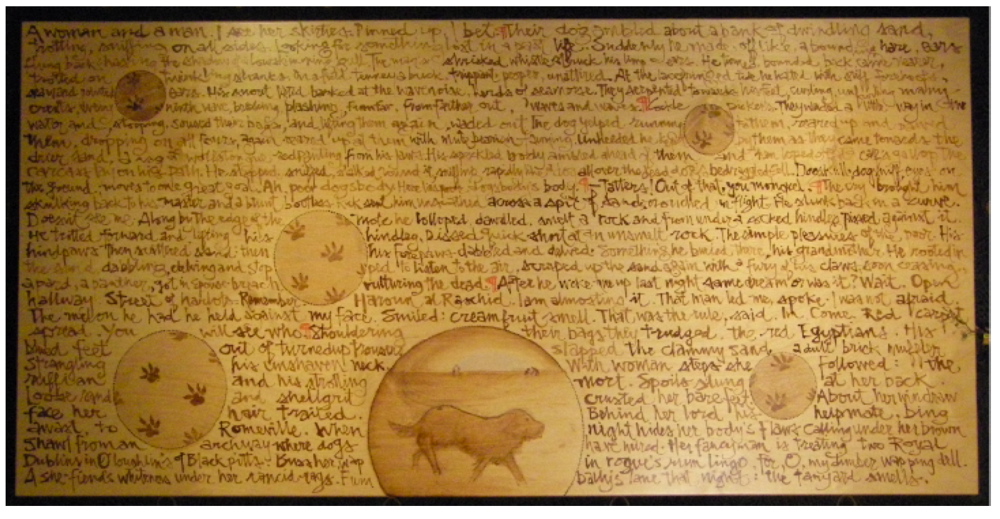 A woman and a man. I see her skirties. Pinned up, I bet. ¶ Their dog ambled about a bank of dwindling sand,
trotting, sniffing on all sides. Looking for something lost in a past life. Suddenly he made off like a bounding hare, ears
flung back, chasing the shadow of a lowskimming gull. The man's shrieked whistle struck his limp ears. He turned, bounded back, came nearer,
trotted on twinkling shanks. On a field tenney a buck, trippant, proper, unattired. At the lacefringe of the tide he halted with stiff forehoofs,
seaward pointed ears. His snout lifted barked at the wavenoise, herds of seamorse. They serpented towards his feet, curling, unfurling many
crests, every ninth, wave breaking, plashing, from far, from farther out, waves and waves. ¶ Cockle pickers. They waded a little way in the
water and, stooping, soused their bags, and, lifting them again, waded out. The dog yelped running to them, reared up and pawed
them, dropping on all fours, again reared up at them with mute bearish fawning. Unheeded he kept by them as they came towards the
drier sand, a rag of wolf's tongue redpanting from his jaws. His speckled body ambled ahead of them and then loped off at a calf's gallop. The
carcass lay on his path. He stopped, sniffed, stalked round it, sniffing rapidly like a dog all over the dead dog's bedraggled fell. Dogskull, dogsniff, eyes on
the ground, moves to one great goal. Ah, poor dogsbody! Here lies poor dogsbody's body. ¶ — Tatters! Out of that, you mongrel. ¶ The cry brought him
skulking back to his master and a blunt bootless kick sent him unscathed across a spit of sand, crouched in flight. He slunk back in a curve.
Doesn't see me. Along by the edge of the mole he lolloped, dawdled, smelt a rock and from under a cocked hindleg pissed against it.
He trotted forward and, lifting his hindleg, pissed quick short at an unsmelt rock. The simple pleasures of the poor. His
hindpaws then scattered sand: then his forepaws dabbled and delved. Something he buried there, his grandmother. He rooted in
the sand, dabbling, delving and stopped to listen to the air, scraped up the sand again with a fury of his claws, soon ceasing,
a pard, a panther, got in spousebreach, vulturing the dead. ¶ After he woke me up last night same dream or was it? Wait. Open
hallway. Street of harlots. Remember. Haroun al Raschid. I am almosting it. That man led me, spoke. I was not afraid.
The melon he had he held against my face. Smiled: creamfruit smell. That was the rule, said. In. Come. Red carpet
spread. You will see who. ¶ Shouldering their bags they trudged, the red Egyptians. His
blued feet out of turnedup trousers slapped the clammy sand, a dull brick muffler
strangling his unshaven neck. With woman steps she followed: the
ruffian and his strolling mort. Spoils slung at her back.
Loose sand and shellgrit crusted her bare feet. About her windraw
face her hair trailed. Behind her lord his helpmate, bing
awast, to Romeville. When night hides her body's flaws calling under her brown
shawl from an archway where dogs have mired. Her fancyman is treating two Royal
Dublins in O'Loughlin's of Blackpitts. Buss her, wap in rogue's rum lingo, for, O, my dimber wapping dell.
A shefiend's whiteness under her rancid rags. Fumbally's lane that night: the tanyard smells.